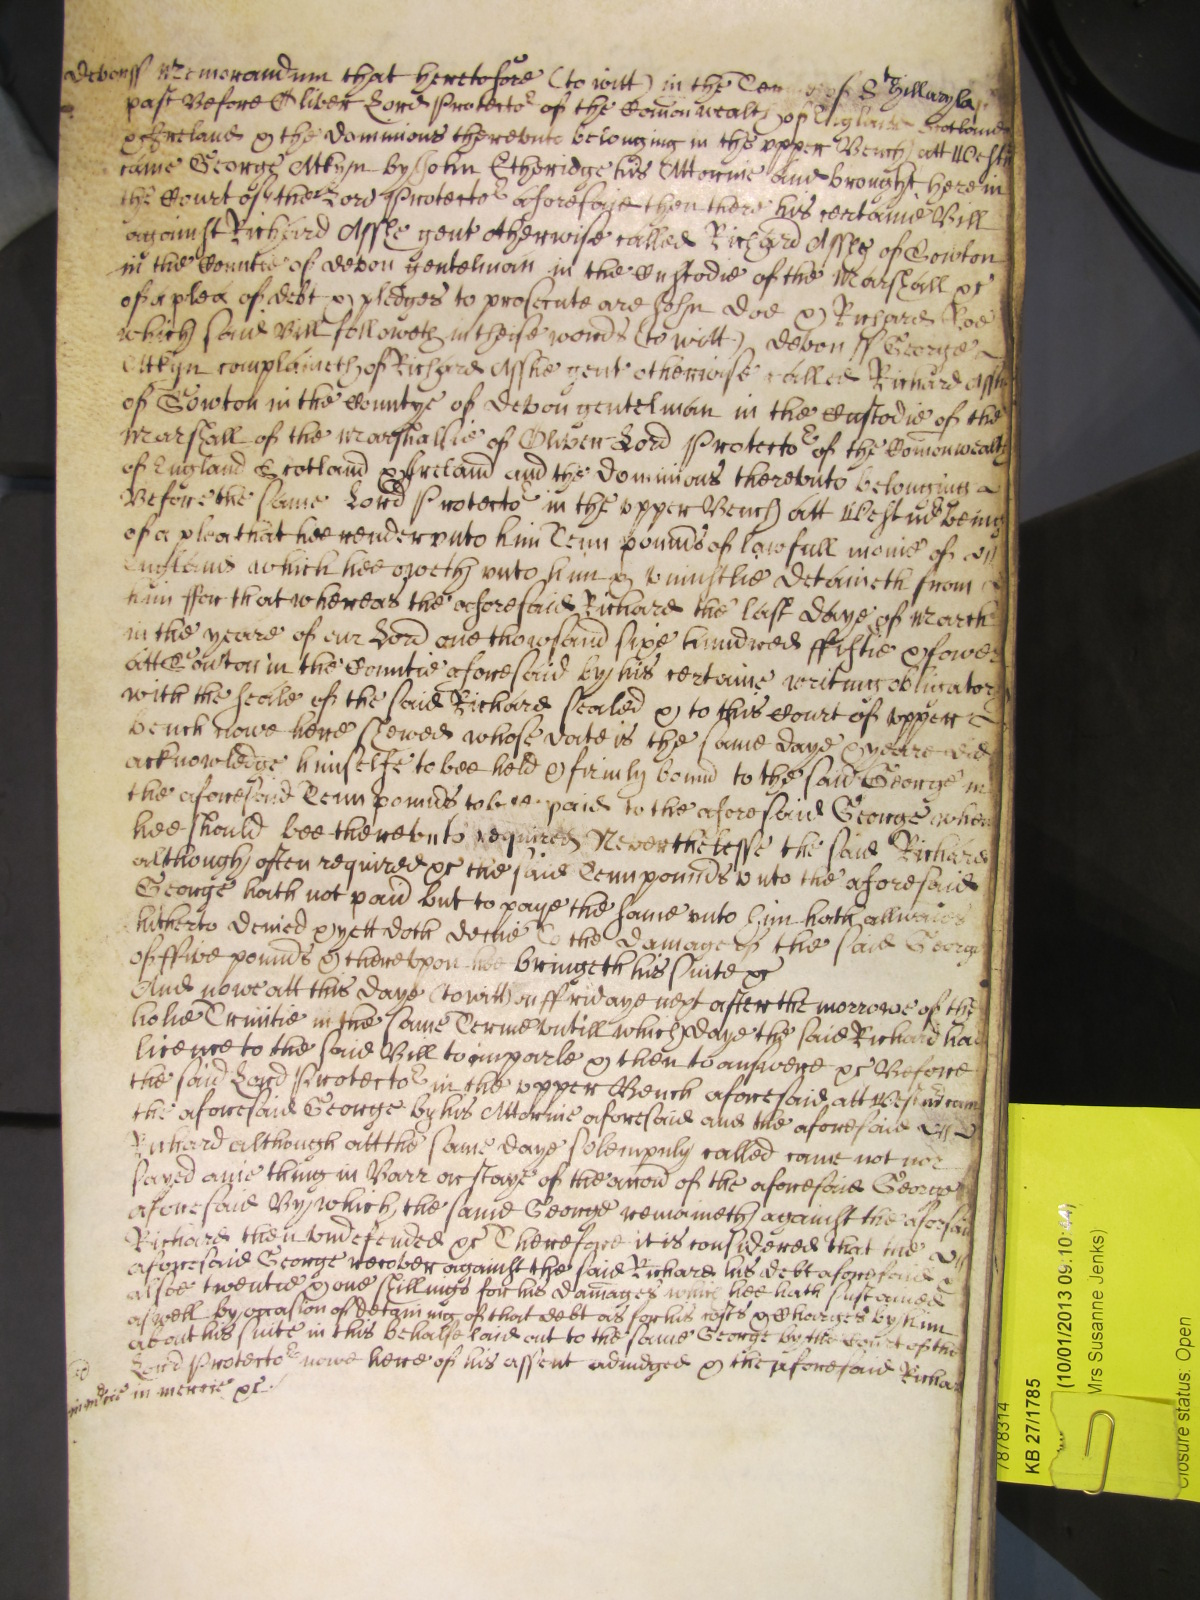 Devon ss Memorandum that heretofore (to witt) in the Terme of St Hillary la
past Before Oliver Lord Protector of the Comonwealth of England Scotland
& Ireland & the dominions therevnto belonging in the vpper Bench att Westm
came George Attkyn by John Etheridge his Attornie and brought here in
the Court of the Lord Protector aforesaid then there his certaine Bill
against Richard Asshe gent otherwise called Richard Asshe of Sowton
in the Countie of Devon gentelman in the Custodie of the Marshall &c
of a plea of debt & pledges to prosecute are John Doe & Richard Roe
which said Bill followeth in theise words (to witt) Devon ss George
Attkyn complaineth of Richard Asshe gent otherwise called Richard Asshe
of Sowton in the Countye of Devon gentelman in the Custodie of the
Marshall of the Marshallsie of Oliver Lord Protector of the Comonwealth
of England Scotland & Ireland and the Dominions therevnto belonging
Before the same Lord Protector in the vpper Bench att Westm being
of a plea that hee render vnto him Tenn pounds of lawfull monie of
England which hee oweth vnto him & vniustlie detaineth from
him ffor that whereas the aforesaid Richard the last daye of March
in the yeare of our Lord one thowsand sixe hundred ffiftie & fower
att Sowton in the Countie aforesaid by his certaine writing obligator
with the seale of the said Richard sealed & to this Court of vpper
bench nowe here shewed whose date is the same daye & yeare did
acknowledge himselfe to bee held & firmly bound to the said George in
the aforesaid Tenn pounds to bee paid to the aforesaid George when
hee should bee therevnto required Neverthelesse the said Richard
although often required &c the said Tenn pounds vnto the aforesaid
George hath not paid but to paye the same vnto him hath allwaies
hitherto denied & yett doth denie To the damage of the said George
of ffive pounds & therevpon hee bringeth his suite &c
And nowe att this daye (to witt) on ffridaye next after the morrowe of the
holie Trinitie in the same Terme vntill which daye the said Richard had
licence to the said Bill to imparle & then to answere &c Before
the said Lord Protector in the vpper Bench aforesaid att Westm came
the aforesaid George by his Attornie aforesaid and the aforesaid
Richard although att the same daye solempnly called came not nor
sayed anie thing in Barr or staye of the accon of the aforesaid George
aforesaid By which the same George remaineth against the aforsaid
Richard then vndefended &c Therefore it is considered that the
aforesaid George recover against the said Richard his debt aforesaid
alsoe twentie & one shillings for his damages which hee hath sustained
aswell by occasion of detaining of that debt as for his costs & Charges by him
about his suite in this behalfe laid out to the same George by the Court of the
Lord Protector nowe here of his assent adiudged & the aforesaid Richard
in mercie &c
in mercie
7878314
KB 27/1785
(10/01/2013 09:10:44)
Mrs Susanne Jenks)
Closure status: Open